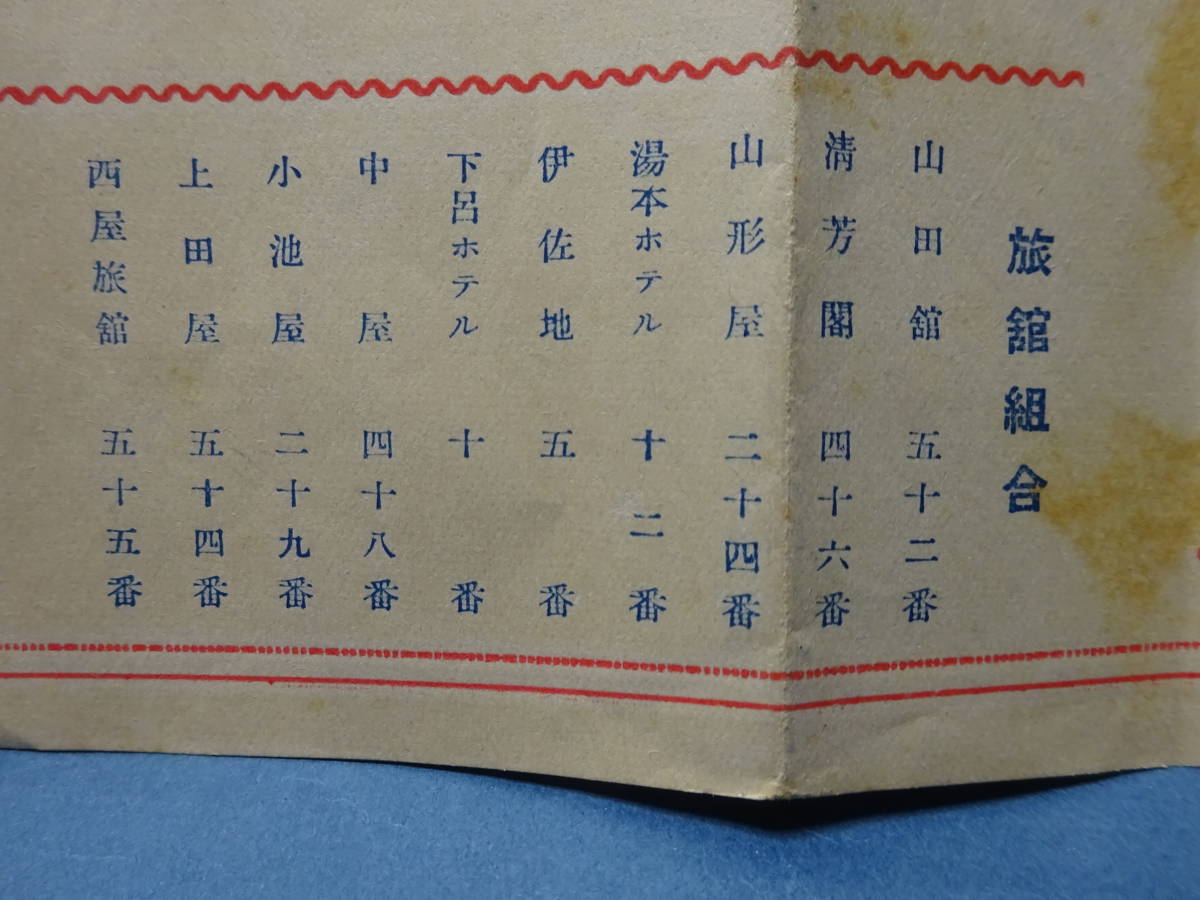 旅舘組合
山田舘 五十二番
清芳閣 四十六番
山形屋 二十四番
湯本ホテル 十二番
伊佐地 五番
下呂ホテル 十番
中屋 四十八番
小池屋 二十九番
上田屋 五十四番
西屋旅舘 五十五番